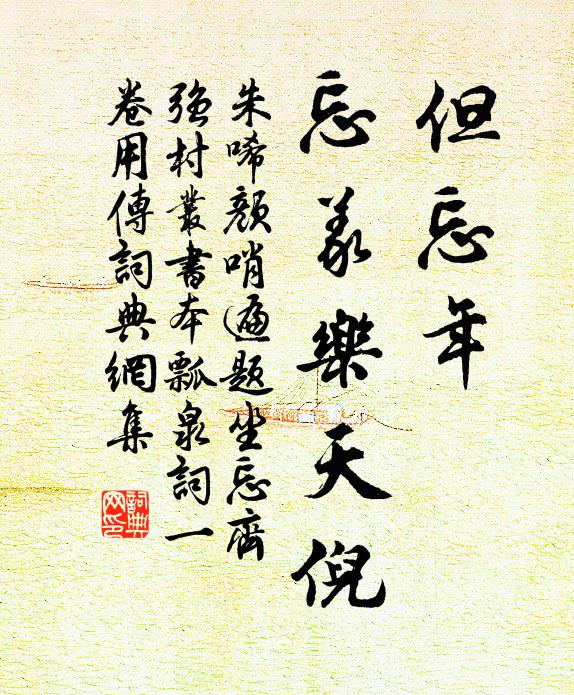 但忘年
忘義樂天倪
朱唏顏哨遍題坐忘齊
強村叢書本瓢泉詞一
卷用傳詞典網集
詞典網印